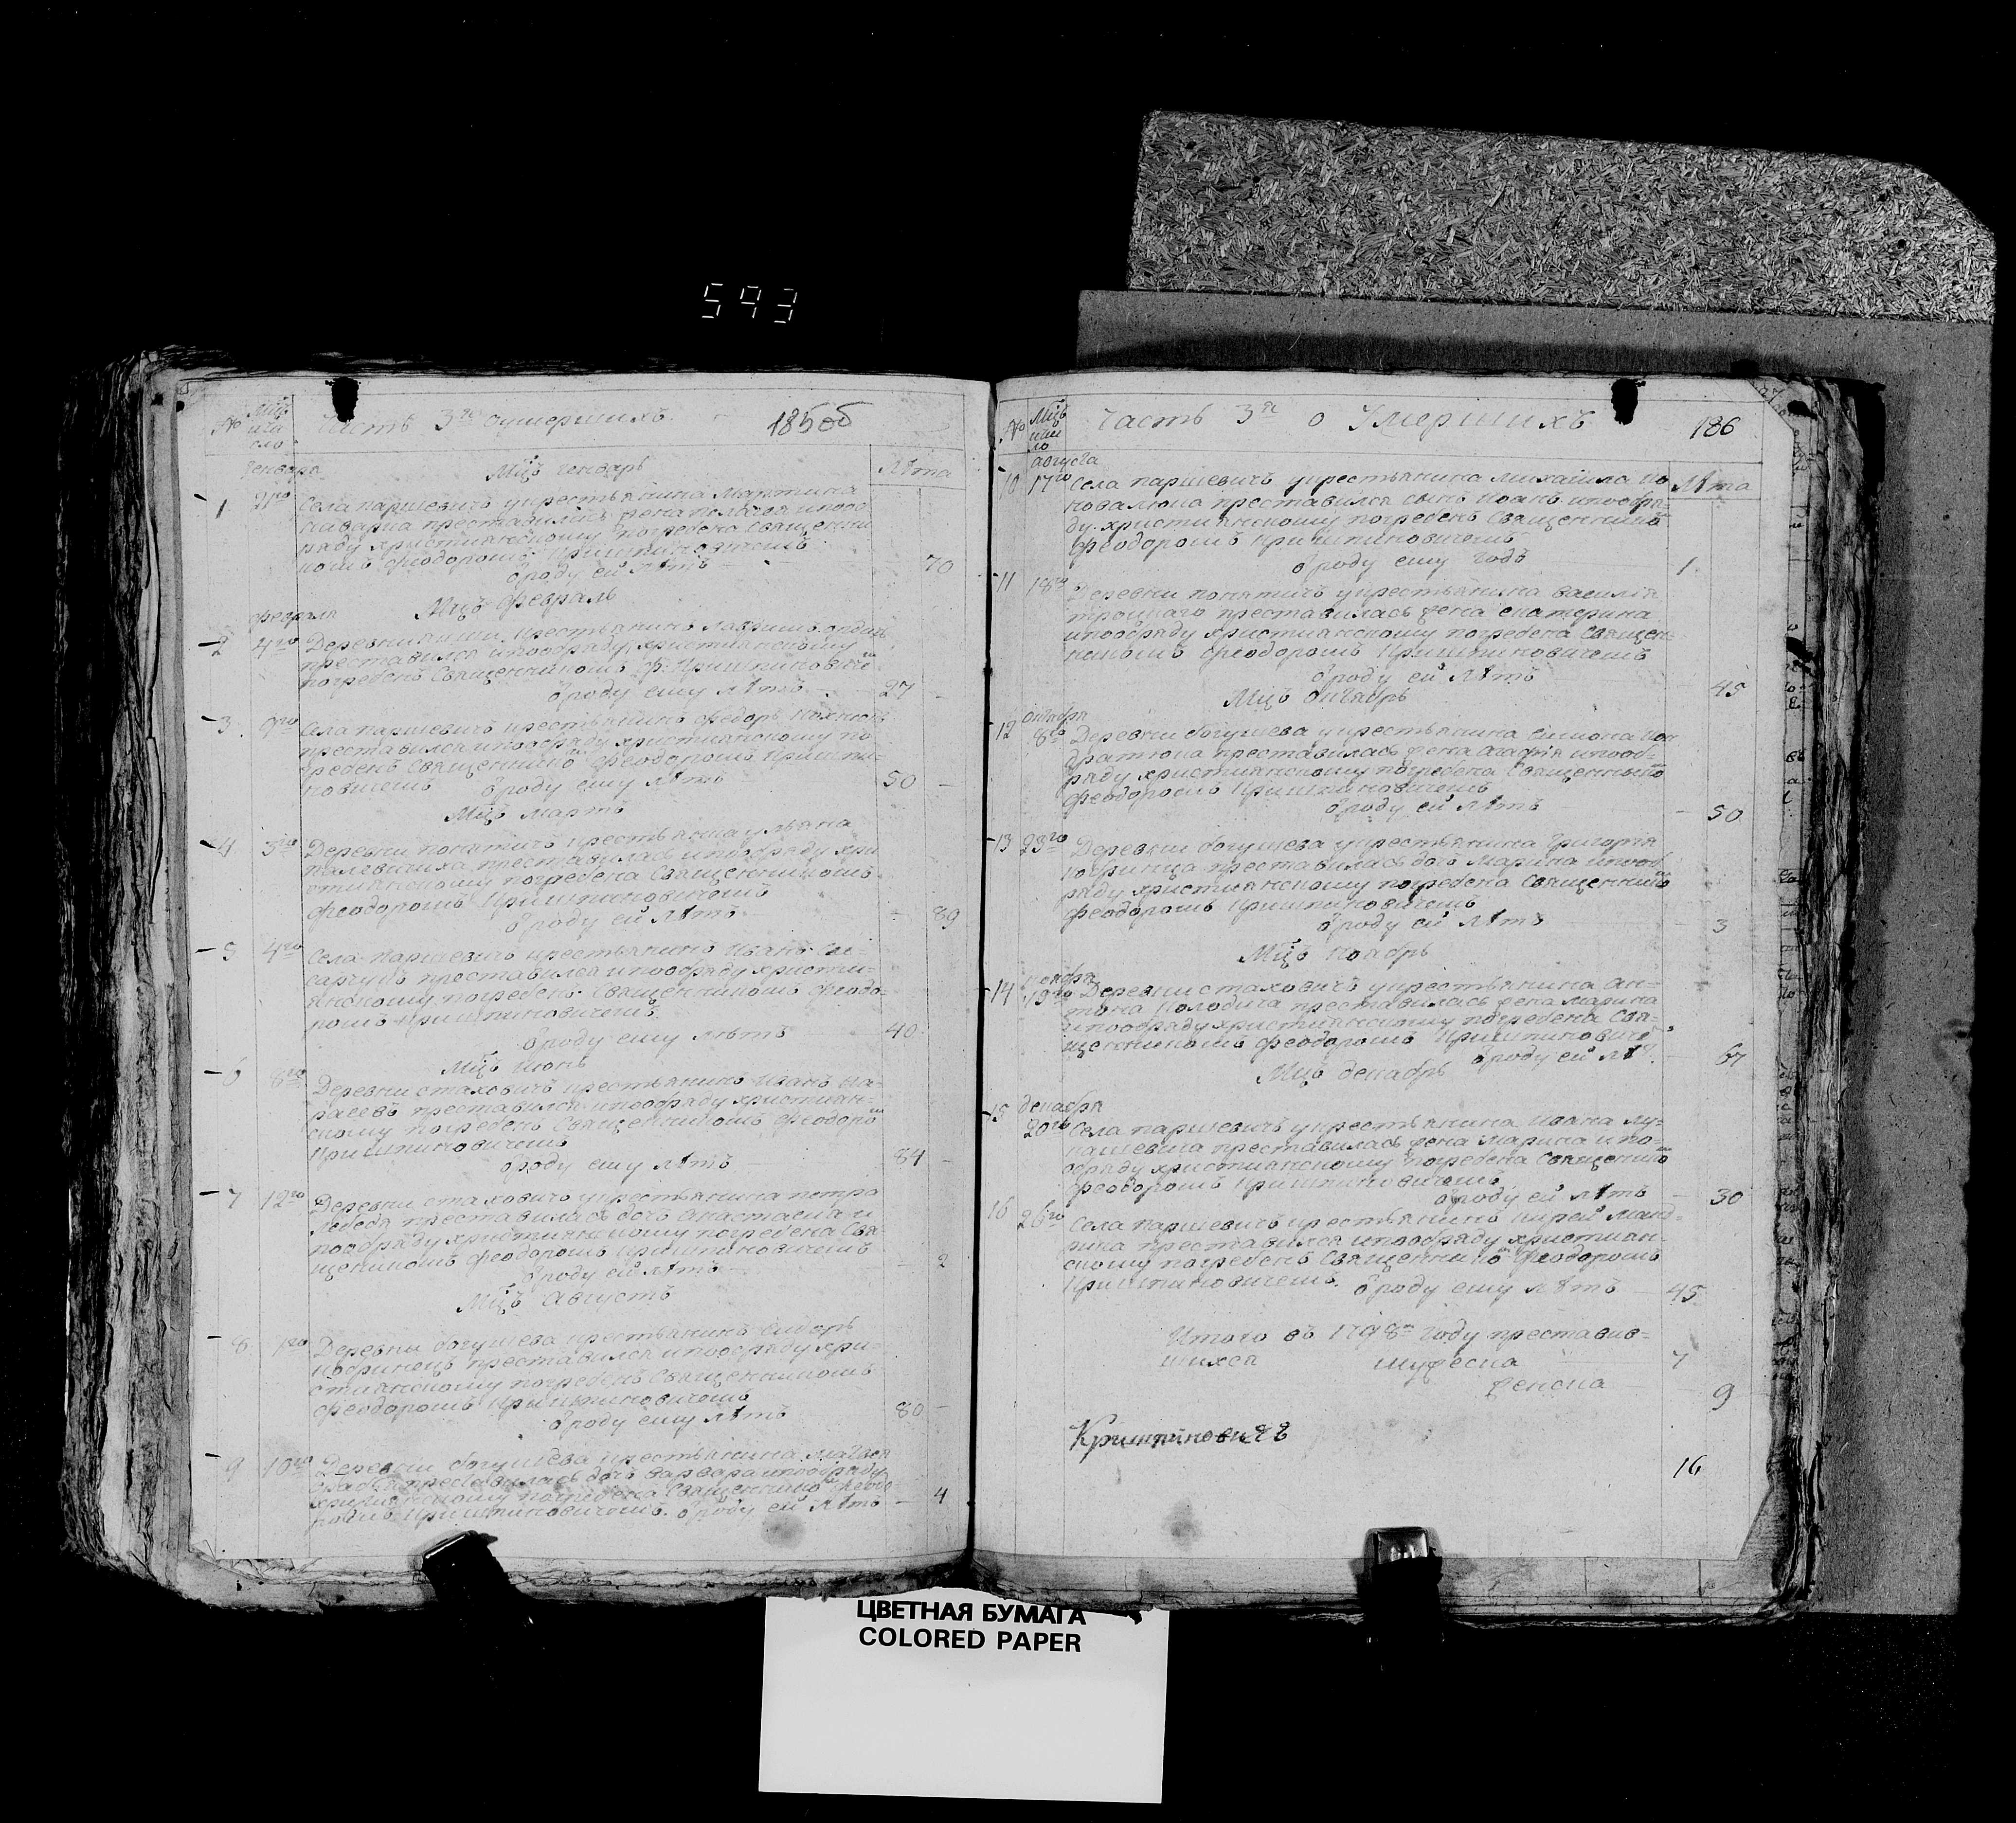 593
№
Мцъ
и чи
сло
Часть 3я о умершихъ
185об
генваря
Мцъ генварь
лѣта
1 21го Села паршевичъ у крестьянина Мартина
преставилась жена пелагея и пооб
ряду христианскому погребена Священни
комъ феодоромъ Криштиновичемъ
ѿ роду ей лѣтъ - 70
Мцъ февраль
февраля
2 4го Деревни крестьянинъ
преставился и пообряду христианскому
погребенъ Священникомъ Ф: Криштинович
ѿ роду ему лѣтъ 27
3 9го Села паршевичъ крестьянинъ федоръ
преставился и пообряду христианскому по
гребенъ Священнико феодоромъ Кришти-
новичемъ ѿ роду ему лѣтъ 50
Мцъ мартъ
4 3го Деревни понятичъ крестьянка ульяна
преставилась и пообряду хри
стианскому погребена Священникомъ
феодоромъ Криштиновичемъ
ѿ роду ей лѣтъ - 89
5 4го Села паршевичъ крестьянинъ Иванъ Сли-
сарчукъ преставился и пообряду христи-
янскому погребенъ Священникомъ феодо-
ромъ криштиновичемъ
ѿ роду ему лѣтъ 40
Мцъ июнь
6 8го Деревни стаховичъ крестьянинъ Иванъ
преставился и пообряду христиан-
скому погребенъ Священникомъ Феодоро
Криштиновичемъ
ѿ роду ему лѣтъ 84
7 12го Деревни стаховичъ у крестьянина петра
лебедя преставилась дочь Анастасия и
пообряду христианскому погребена Свя-
щеникомъ феодоромъ Криштиновичемъ
ѿ роду ей лѣтъ - 2
Мцъ Августъ
8 1го Деревни богушева крестьянинъ Сидоръ
кобринецъ преставился и пообряду хри-
стианскому погребенъ Священникомъ
феодоромъ Криштиновичемъ
ѿ роду ему лѣтъ 80
9 10го Деревни богушева крестьянина матвея
преставилась дочь варвара и пообряду
христианскому погребена Священнико феодо-
ромъ Криштиновичемъ. ѿ роду ей лѣтъ - 4
№
Мцъ
и чи
ло
Часть 3я о Умершихъ
186
августа
лѣта
10 17го Села паршевичъ у крестьянина михаила ко
новалюка преставился сынъ иоанъ и пообря-
ду христианскому погребенъ Священникомъ
феодоромъ криштиновичемъ
ѿ роду ему годъ 1.
11 18го Деревни понятичъ у крестьянина василия
троцкаго преставилась жена екатерина
и пообряду христианскому погребена Священ-
никомъ феодоромъ Криштиновичемъ
ѿ роду ей лѣтъ 45
Мцъ октябрь
октября
12 8го Деревни богушева у крестьянина Симона кон
дратюка преставилась жена агафия и пооб-
ряду христианскому погребена Священнико
феодоромъ Криштиновичемъ
ѿ роду ей лѣтъ - 50
13 23го Деревни богушева у крестьянина Григория
кобринца преставилась дочь Марина и пооб
ряду христианскому погребена Священнико
феодоромъ Криштиновичемъ
ѿ роду ей лѣтъ - 3
Мцъ ноябрь
ноября
14 19го Деревни стаховичъ у крестьянина ан-
тона Колодича преставилась жена марина
и пообряду христианскому погребена Свя-
щенникомъ феодоромъ Криштинович
ѿ роду ей лѣ. - 67
Мцъ декабрь
декабря
15 20го Села паршевичъ у крестьянина Ивана лу-
кашевича преставилась жена марина и по-
обряду христианскому погребена Священико
феодоромъ Криштиновичемъ
ѿ роду ей лѣтъ - 30
16 26го Села паршевичъ крестьянинъ Кирей
преставился и пообряду христиан-
скому погребенъ Священнико феодоромъ
Криштиновичемъ. ѿ роду ему лѣтъ - 45
Итого въ 1798м году преставив-
шихся мужеска 7
женска 9
Криштиновичъ
16
ЦВЕТНАЯ БУМАГА
COLORED PAPER